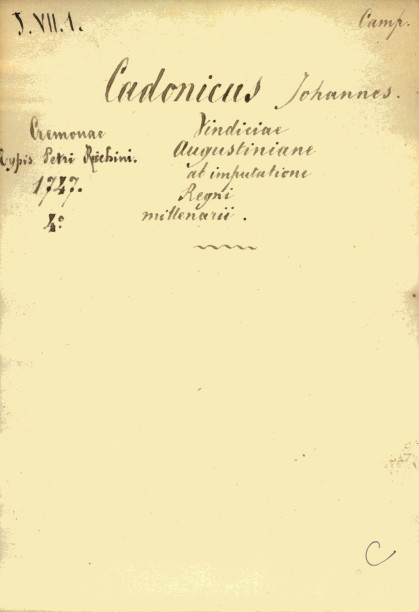 J. VII. 1.
Camp.
Cadonicus Johannes.
Cremonae
Typis Petri Richini.
1747.
4°
Vindiciae
Augustiniane
ab imputatione
Regni
millenarii.
C